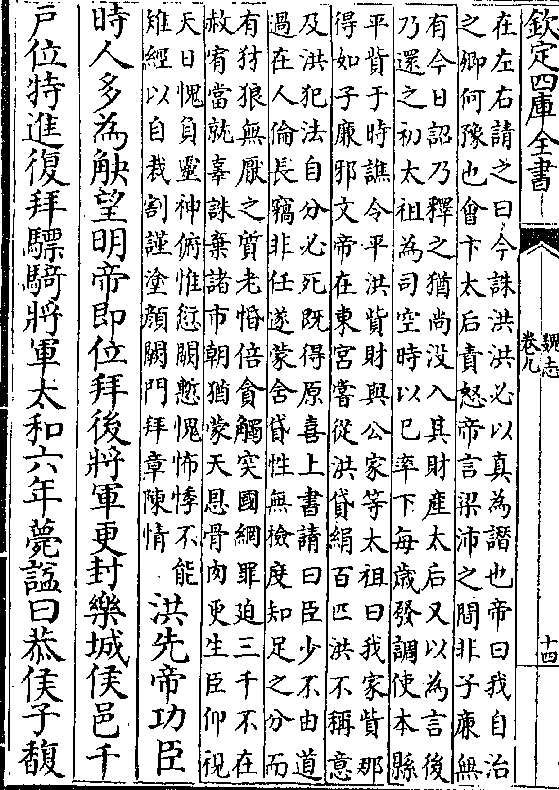 欽定四庫全書
魏志
卷九
十四
在左右請之曰今誅洪洪必以真為譖也帝曰我自治
之卿何豫也會卞太后責怒帝言梁沛之間非子廉無
有今日詔乃釋之猶尚没入其財産太后又以為言後
乃還之初太祖為司空時以巳率下每歲發調使本縣
平貲于時譙令平洪貲財與公家等太祖曰我家貲那
得如子廉邪文帝在東宫嘗從洪貸絹百匹洪不稱意
及洪犯法自分必死既得原喜上書請曰臣少不由道
過在人倫長竊非任遂蒙舍貸性無檢度知足之分而
有豺狼無厭之質老惛倍貪觸突國網罪迫三千不在
赦宥當就辜誅棄諸市朝猶蒙天恩骨肉更生臣仰視
天日愧負靈神俯惟愆闕慙愧怖悸不能
雉經以自裁割謹塗顔闕門拜章陳情
洪先帝功臣
時人多為觖望明帝即位拜後將軍更封樂城侯邑千
戸位特進復拜驃騎將軍太和六年薨謚曰恭侯子馥